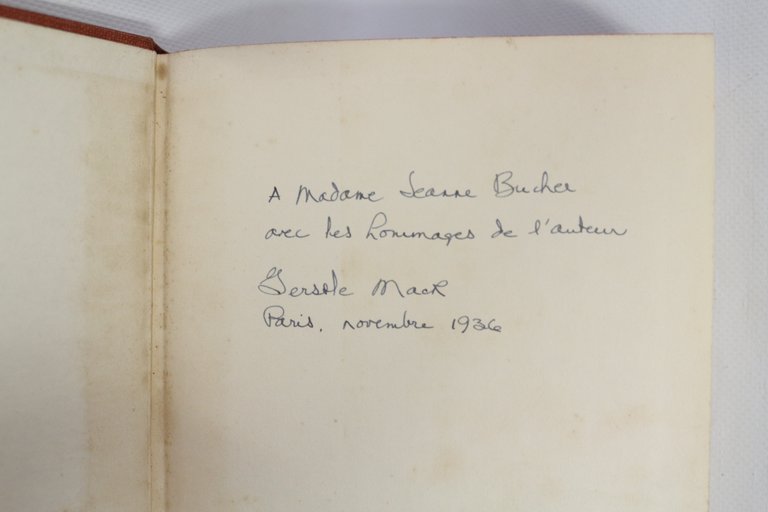 A Madame Jeanne Bucher
avec les hommages de l'auteur
Gerstle Mack
Paris, novembre 1936